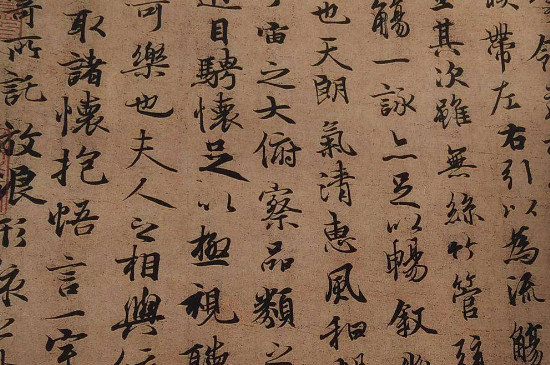 領茂
暎帶左右引以為流觴
坐其次雖無絲竹管弦
觴一詠亦足以暢敘幽
也天朗氣清惠風和暢
宙之大俯察品類之
遊目騁懷足以極視聽
可樂也夫人之相與俯
取諸懷抱悟言一室
寄所託放浪形骸之